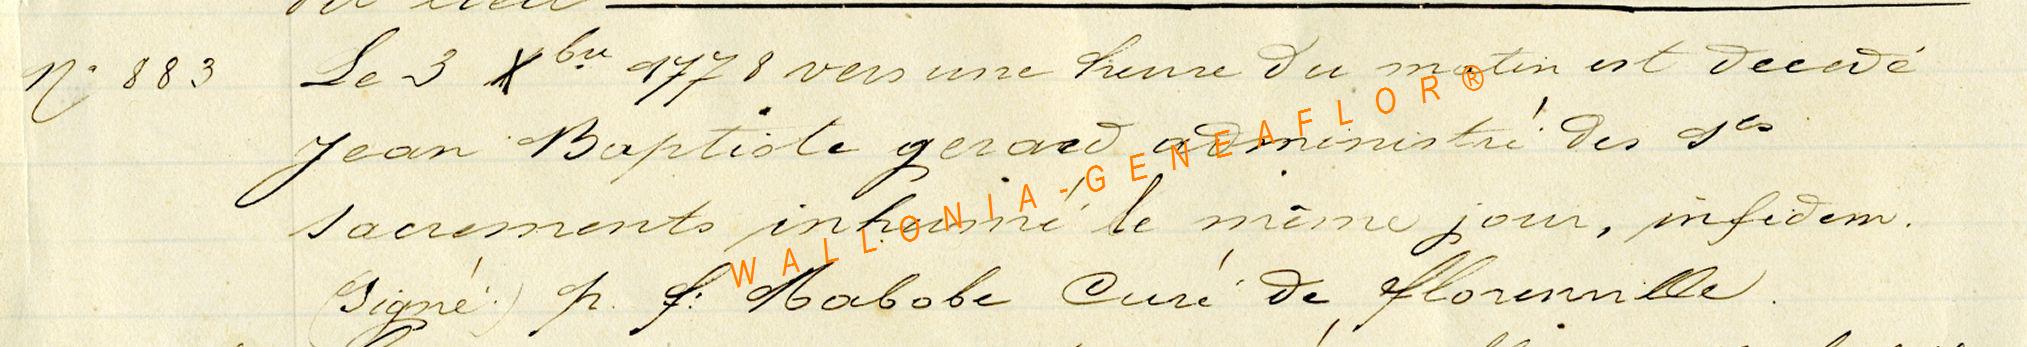 N° 883 Le 3 Xbre 1778 vers une heure du matin est decedé
Jean Baptiste gerard administré des Stes
sacrements inhumé le même jour, infidem.
(Signé) p. f: Mabobe Curé de florenville.
WALLONIA-GENEAFLOR®